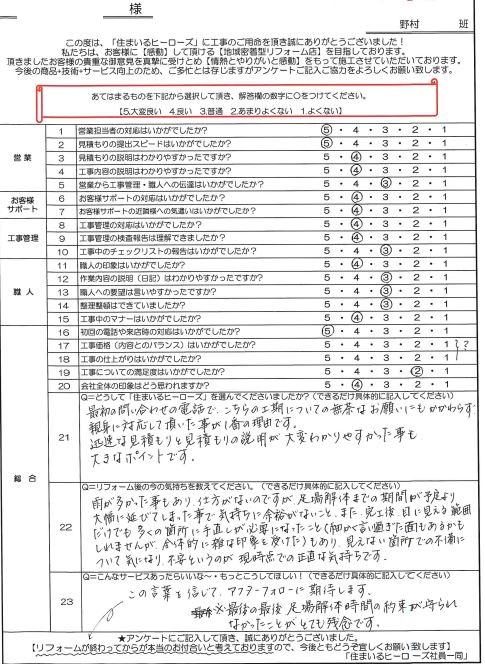 様
野村 班
この度は、「住まいるヒーローズ」に工事のご用命を頂き誠にありがとうございました!
私たちは、お客様に【感動】して頂ける【地域密着型リフォーム店】を目指しております。
頂きましたお客様の貴重な御意見を真摯に受けとめ【情熱とやりがいと感動】をもって施工させていただいております。
今後の商品+技術+サービス向上のため、ご多忙とは存じますがアンケートご記入に協力をよろしくお願い致します。
あてはまるものを下記から選択して頂き、解答欄の数字に○をつけてください。
【5.大変良い 4.良い 3.普通 2.あまりよくない 1.よくない】
営業
1 営業担当者の対応はいかがでしたか? 5・4・3・2・1
2 見積もりの提出スピードはいかがでしたか? 5・4・3・2・1
3 見積もりの説明はわかりやすかったですか? 5・4・3・2・1
4 工事内容の説明はわかりやすかったですか? 5・4・3・2・1
5 営業から工事管理・職人への伝達はいかがでしたか? 5・4・3・2・1
お客様
サポート
6 お客様サポートの対応はいかがでしたか? 5・4・3・2・1
7 お客様サポートの近隣様への気遣いはいかがでしたか? 5・4・3・2・1
工事管理
8 工事管理の対応はいかがでしたか? 5・4・3・2・1
9 工事管理の検査報告は理解できましたか? 5・4・3・2・1
10 工事中のチェックリストの報告はいかがでしたか? 5・4・3・2・1
職人
11 職人の印象はいかがでしたか? 5・4・3・2・1
12 作業内容の説明(日記)はわかりやすかったですか? 5・4・3・2・1
13 職人への要望は言いやすかったですか? 5・4・3・2・1
14 整理整頓はできていましたか? 5・4・3・2・1
15 工事中のマナーはいかがでしたか? 5・4・3・2・1
総合
16 初回の電話や来店時の対応はいかがでしたか? 5・4・3・2・1
17 工事価格(内容とのバランス)はいかがでしたか? 5・4・3・2・1
?
18 工事の仕上がりはいかがでしたか? 5・4・3・2・1
19 工事についての満足度はいかがでしたか? 5・4・3・2・1
20 会社全体の印象はどう思われますか? 5・4・3・2・1
21
Q=どうして「住まいるヒーローズ」を選んでくださいましたか?(できるだけ具体的に記入してください)
最初の問い合わせの電話で、こちらの工期についての無茶なお願いにもかかわらず
親身に対応して頂いた事が1番の理由です。
迅速な見積もりと見積もりの説明が大変わかりやすかった事も
大きなポイントです。
22
Q=リフォーム後の今の気持ちを教えてください。(できるだけ具体的に記入してください)
雨が多かった事もあり、仕方がないのですが足場解体までの期間が予定より
大幅に延びてしまった事で気持ちに余裕がないこと。また、完工後、目に見える範囲
だけでも多くの箇所に手直しが必要になったこと(細かく言い過ぎた面もあるかも
しれませんが、全体的に雑な印象を受けた)もあり、見えない箇所での不備に
ついて気になり、不安というのが現時点での正直な気持ちです。
23
Q=こんなサービスあったらいいな~・もっとこうしてほしい!(できるだけ具体的に記入してください)
この言葉を信じて、アフターフォローに期待します。
※最後の最後、足場解体時間の約束が守られ
なかったことがとても残念です。
★アンケートにご記入して頂き、誠にありがとうございました。
【リフォームが終わってからが本当のお付合いと考えておりますので、今後ともどうぞ宜しくお願い致します】
「住まいるヒーローズ社員一同」